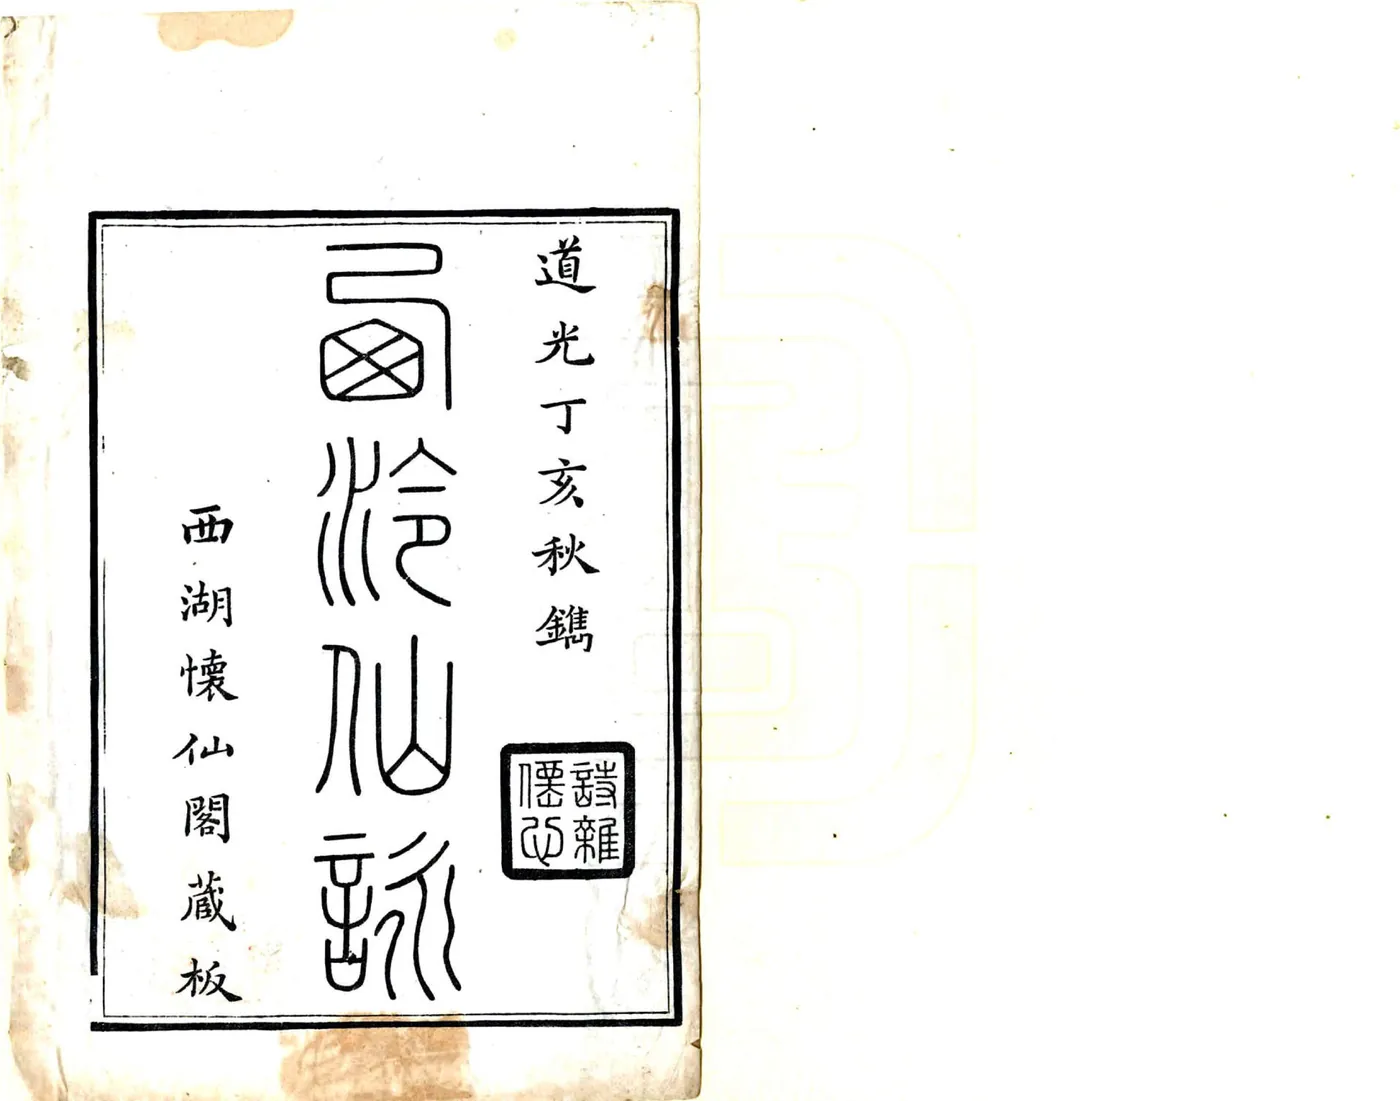 道光丁亥秋鐫
詩雜
僊心
西泠仙詠
西湖懷仙閣藏板